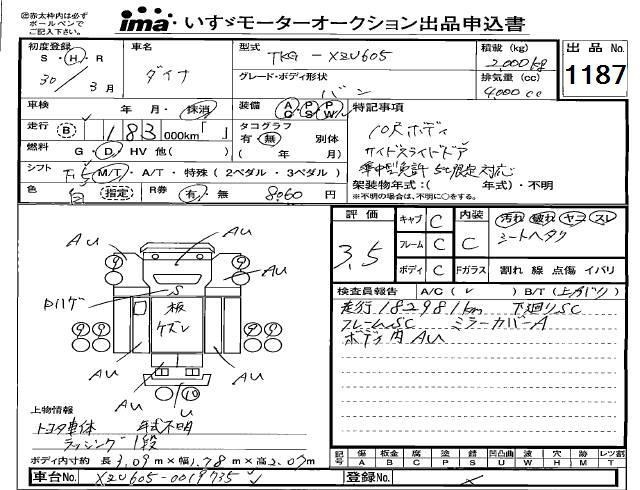 ㊟赤太枠内は
ボールペンで
ご記入下さい。
ima・いすゞモーターオークション出品申込書
初度登録 S・H・R 30/3月
車名 ダイナ
型式 TKG-XZU605
グレード・ボディ形状 バン
積載(kg) 2,000kg
排気量(cc) 4,000cc
出品No. 1187
車検 年 月・抹消
装備 AC PS PW
特記事項
走行 B 183,000km「 」
タコグラフ 有・無 別体
( 年 月)
10尺ボディ
サイドスライドドア
準中型免許 5t限定対応
燃料 G・D・HV 他( )
シフト F5 M/T・A/T・特殊(2ペダル・3ペダル)
架装物年式:( 年式)・不明
※不明の場合は、不明に○をする。
色 白 指定 R券 有・無 8060円
評価 3.5
キャブ C 内装 C 汚れ 破れ ヤコ スレ
シートヘタリ
フレーム C
ボディ C Fガラス 割れ 線 点傷 イバリ
検査員報告 A/C(レ) B/T(上がり)
走行182981km 下廻りSC
フレームSC ミラーカバーA
ボディ内AU
AU
AU
9
9
S
板
ケズレ
9 9
9 9
AU
AU
AU
U
10
上物情報
トヨタ車体 年式不明
ラッシング1段
ボディ内寸約 長3.09m×幅1.78m×高2.07m
記号 傷A 板金B 腐C 塗P 錆S 凹凸曲U 波W 穴H 跡M レツ割T
車台No. XZU605-0019735
登録No. ×